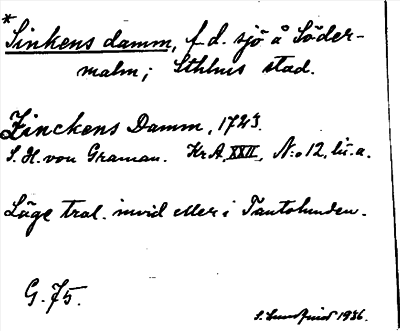 * Sinkens damm, f.d. sjö å Söder-
malm; Sthlms stad.
Zinckens Damm, 1723.
S. H. von Graman. KrA XXII, N:o 12, lit. a.
Läge tral. invid eller i Tantolunden.
G. 75.
S. Lundquist 1936.